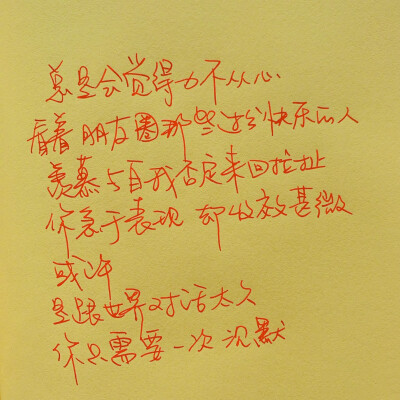 总是会觉得力不从心
看着朋友圈那些过分快乐的人
羡慕与自我否定来回拉扯
你急于表现 却收效甚微
或许
是跟世界对话太久
你只需要一次沉默